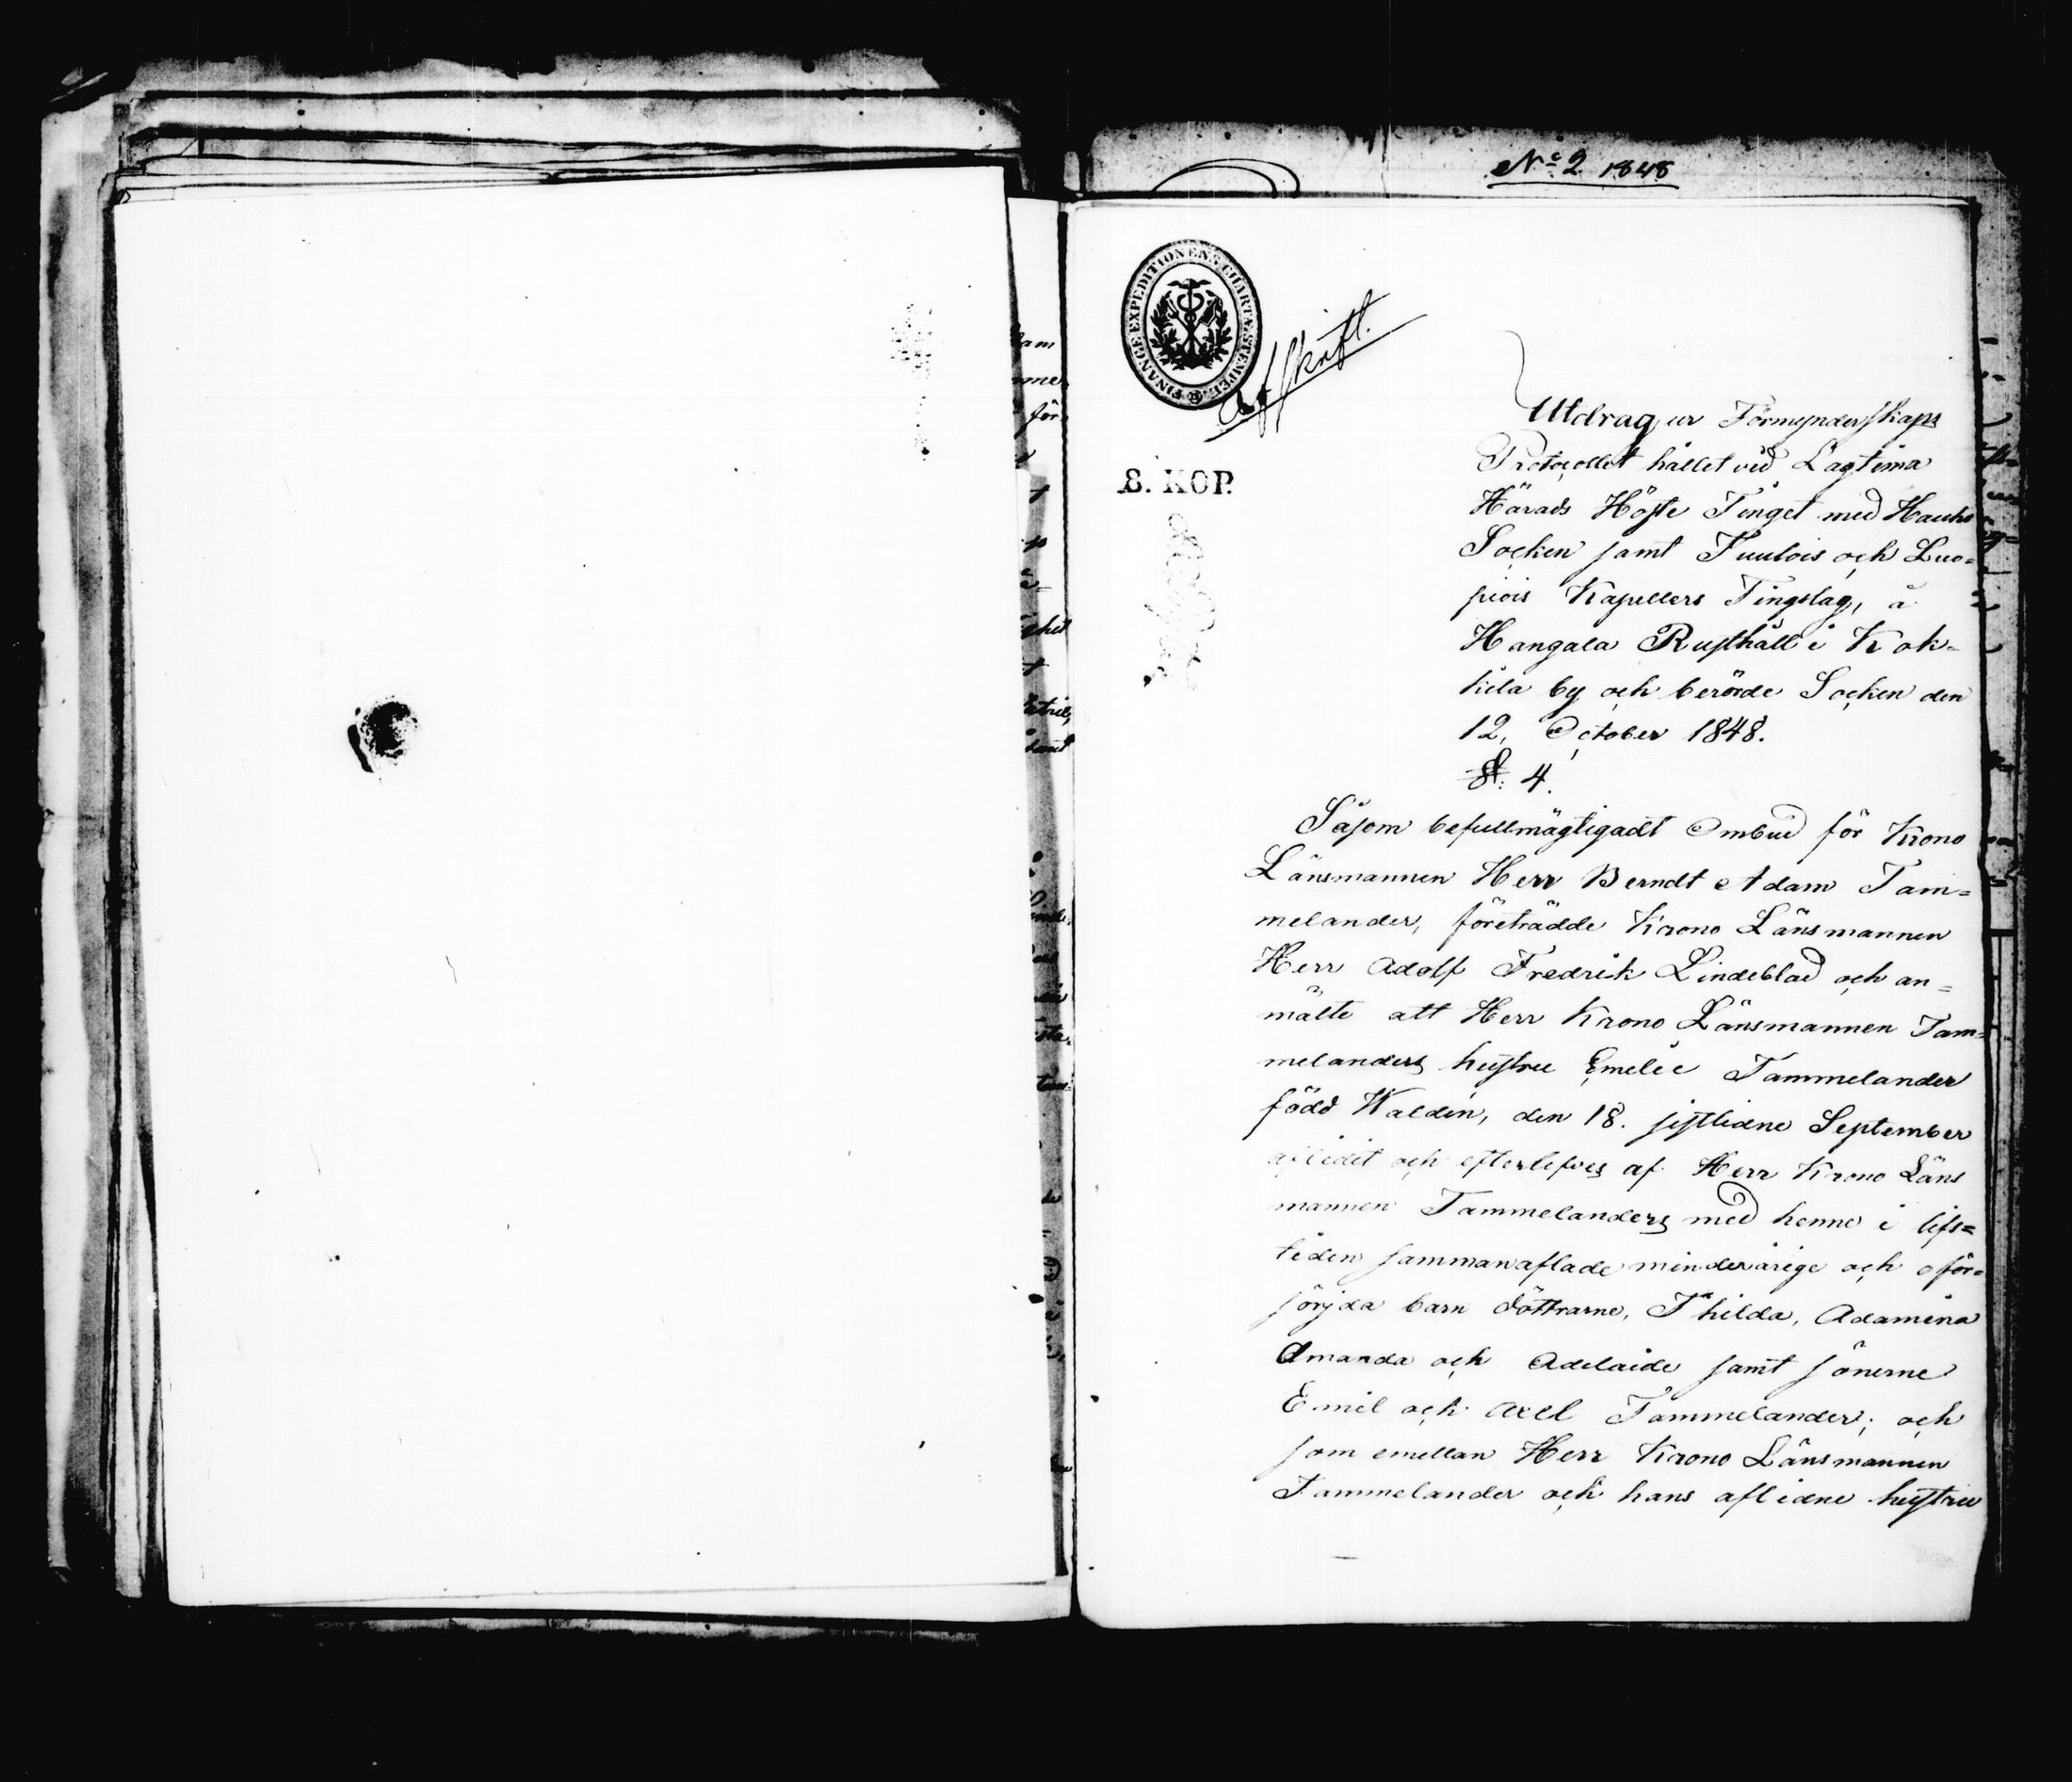 N:o 2 1848
FINANCE EXPEDITIONENS CHARTÆ STEMPEL
Afskrift.
8. KOP.
Utdrag ur Förmynderskaps
Protocollet hållet vid Lagtima
Härads Höste Tinget med Hauho
Socken samt Tuulois och Luo=
piois Kapellers Tingslag, å
Hangala Rusthåll i Kok=
kila by och berörde Socken den
12. October 1848.
§. 4.
Såsom befullmägtigadt Ombud för Krono
Länsmannen Herr Berndt Adam Tam=
melander, företrädde Krono Länsmannen
Herr Adolf Fredrik Lindeblad och an=
mälte att Herr Krono Länsmannen Tam=
melanders hustru Emelie Tammelander
född Waldin, den 18. sistlidne September
aflidit och efterlefves af Herr Krono Läns
mannen Tammelanders med henne i lifs=
tiden sammanaflade minderårige och oför=
sörjda barn döttrarne, Thilda, Adamina
Amanda och Adelaide samt sönerne
Emil och Axel Tammelander; och
som emellan Herr Krono Länsmannen
Tammelander och hans aflidne hustru